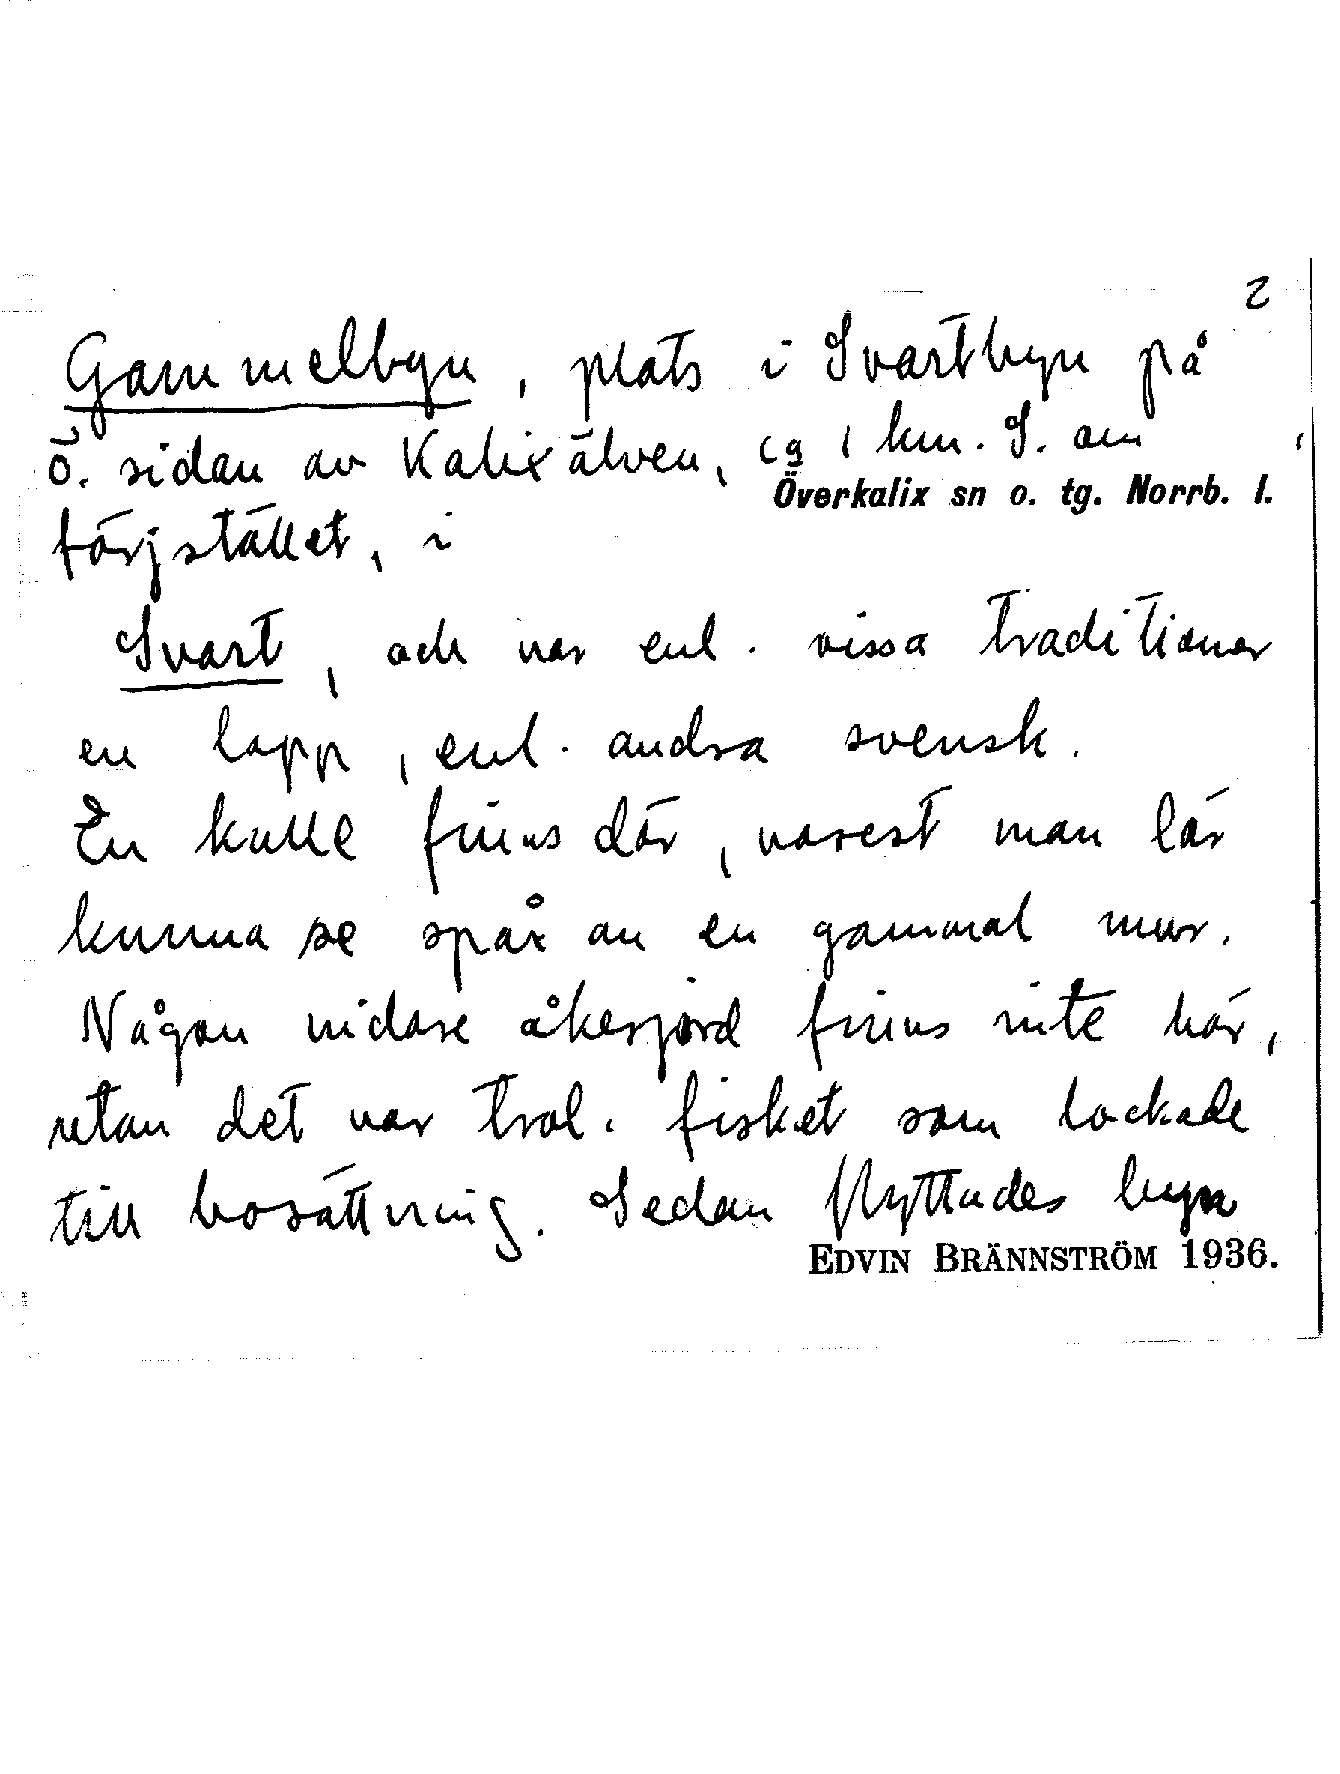 2
Gammelbyn, plats i Svartbyn på
ö. sidan av Kalixälven, ca 1 km. S. om
Överkalix sn o. tg. Norrb. l.
färjstället, i
Svart, och var enl. vissa traditioner
en lapp, enl. andra svensk.
En kulle finns där, varest man lär
kunna se spår av en gammal mur.
Någon vidare åkerjord finns inte här,
utan det var trol. fisket som lockade
till bosättning. Sedan flyttades byn
EDVIN BRÄNNSTRÖM 1936.